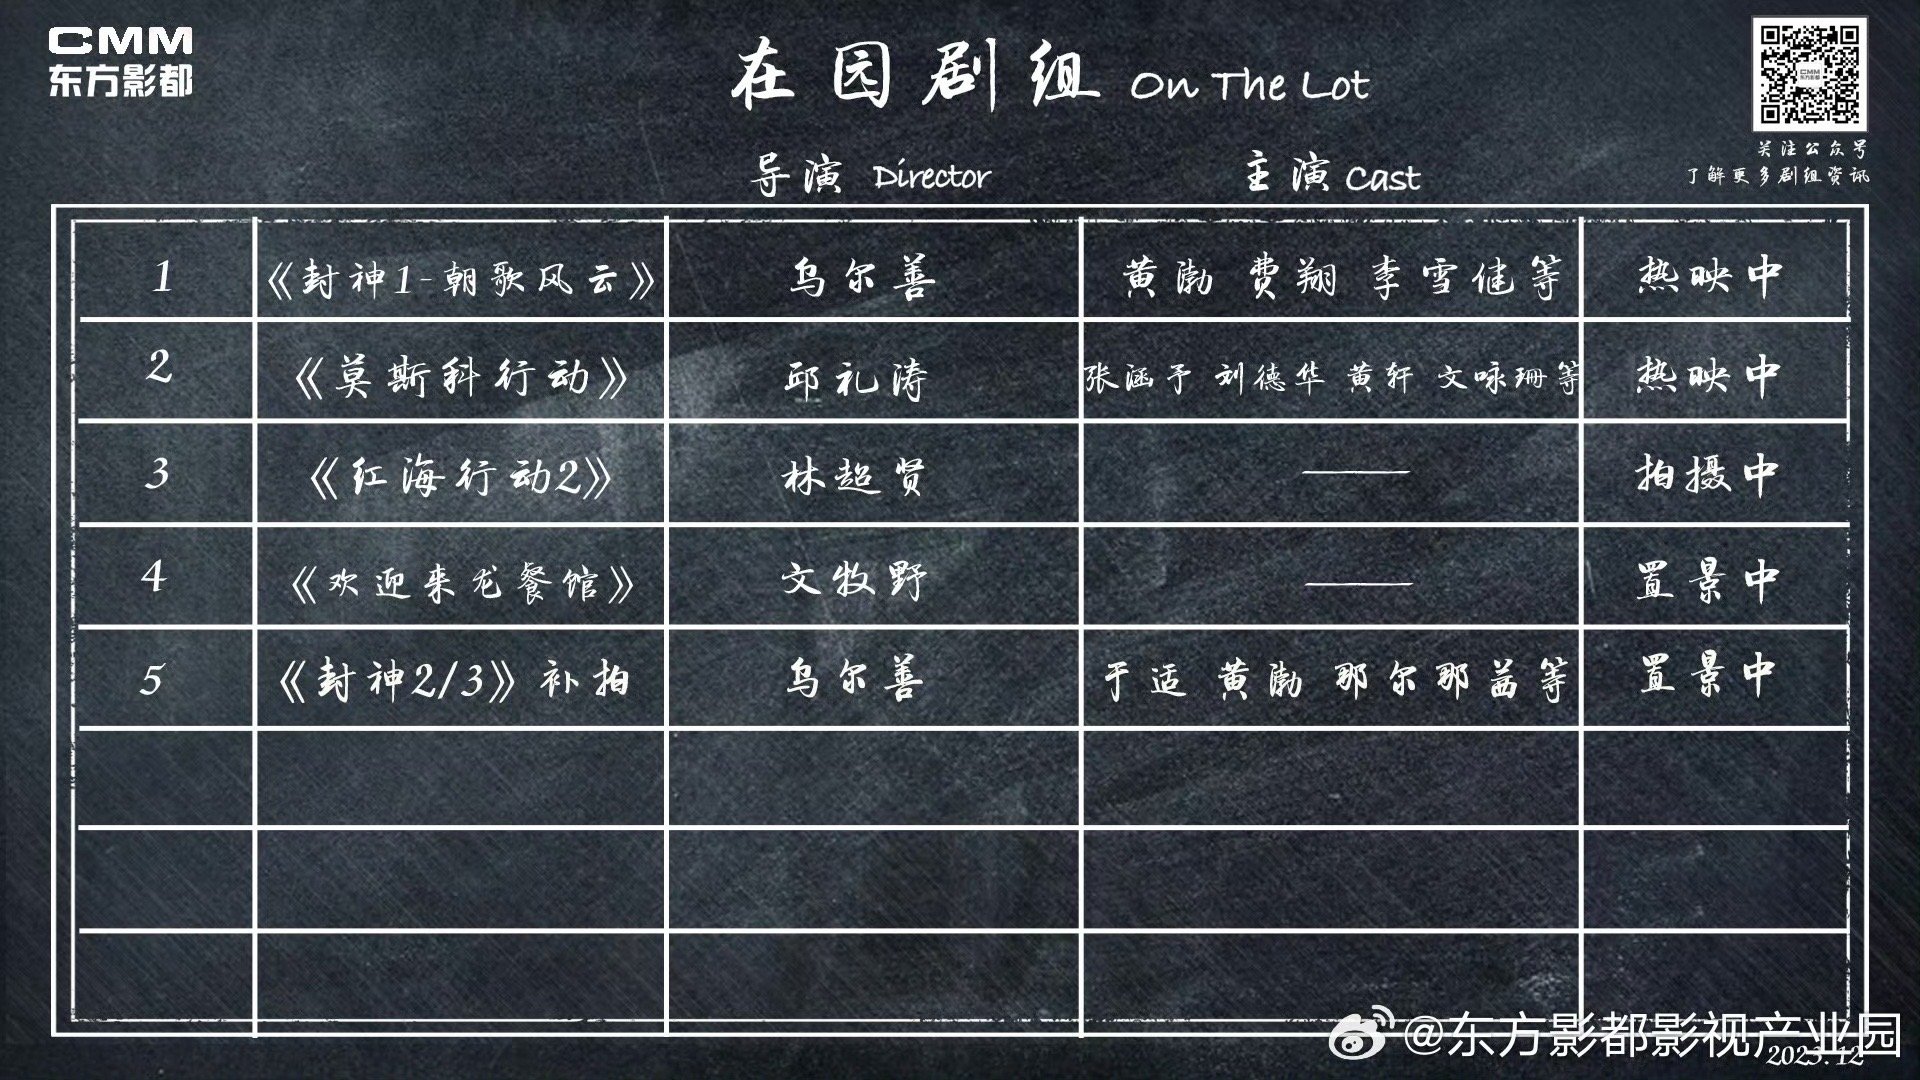 CMM
东方影都
在园剧组 On The Lot
CMM
东方影都
关注公众号
了解更多剧组资讯
导演 Director 主演 Cast
1 《封神1-朝歌风云》 乌尔善 黄渤 费翔 李雪健等 热映中
2 《莫斯科行动》 邱礼涛 张涵予 刘德华 黄轩 文咏珊等 热映中
3 《红海行动2》 林超贤 —— 拍摄中
4 《欢迎来龙餐馆》 文牧野 —— 置景中
5 《封神2/3》补拍 乌尔善 于适 黄渤 那尔那茜等 置景中
@东方影都影视产业园
2023.12